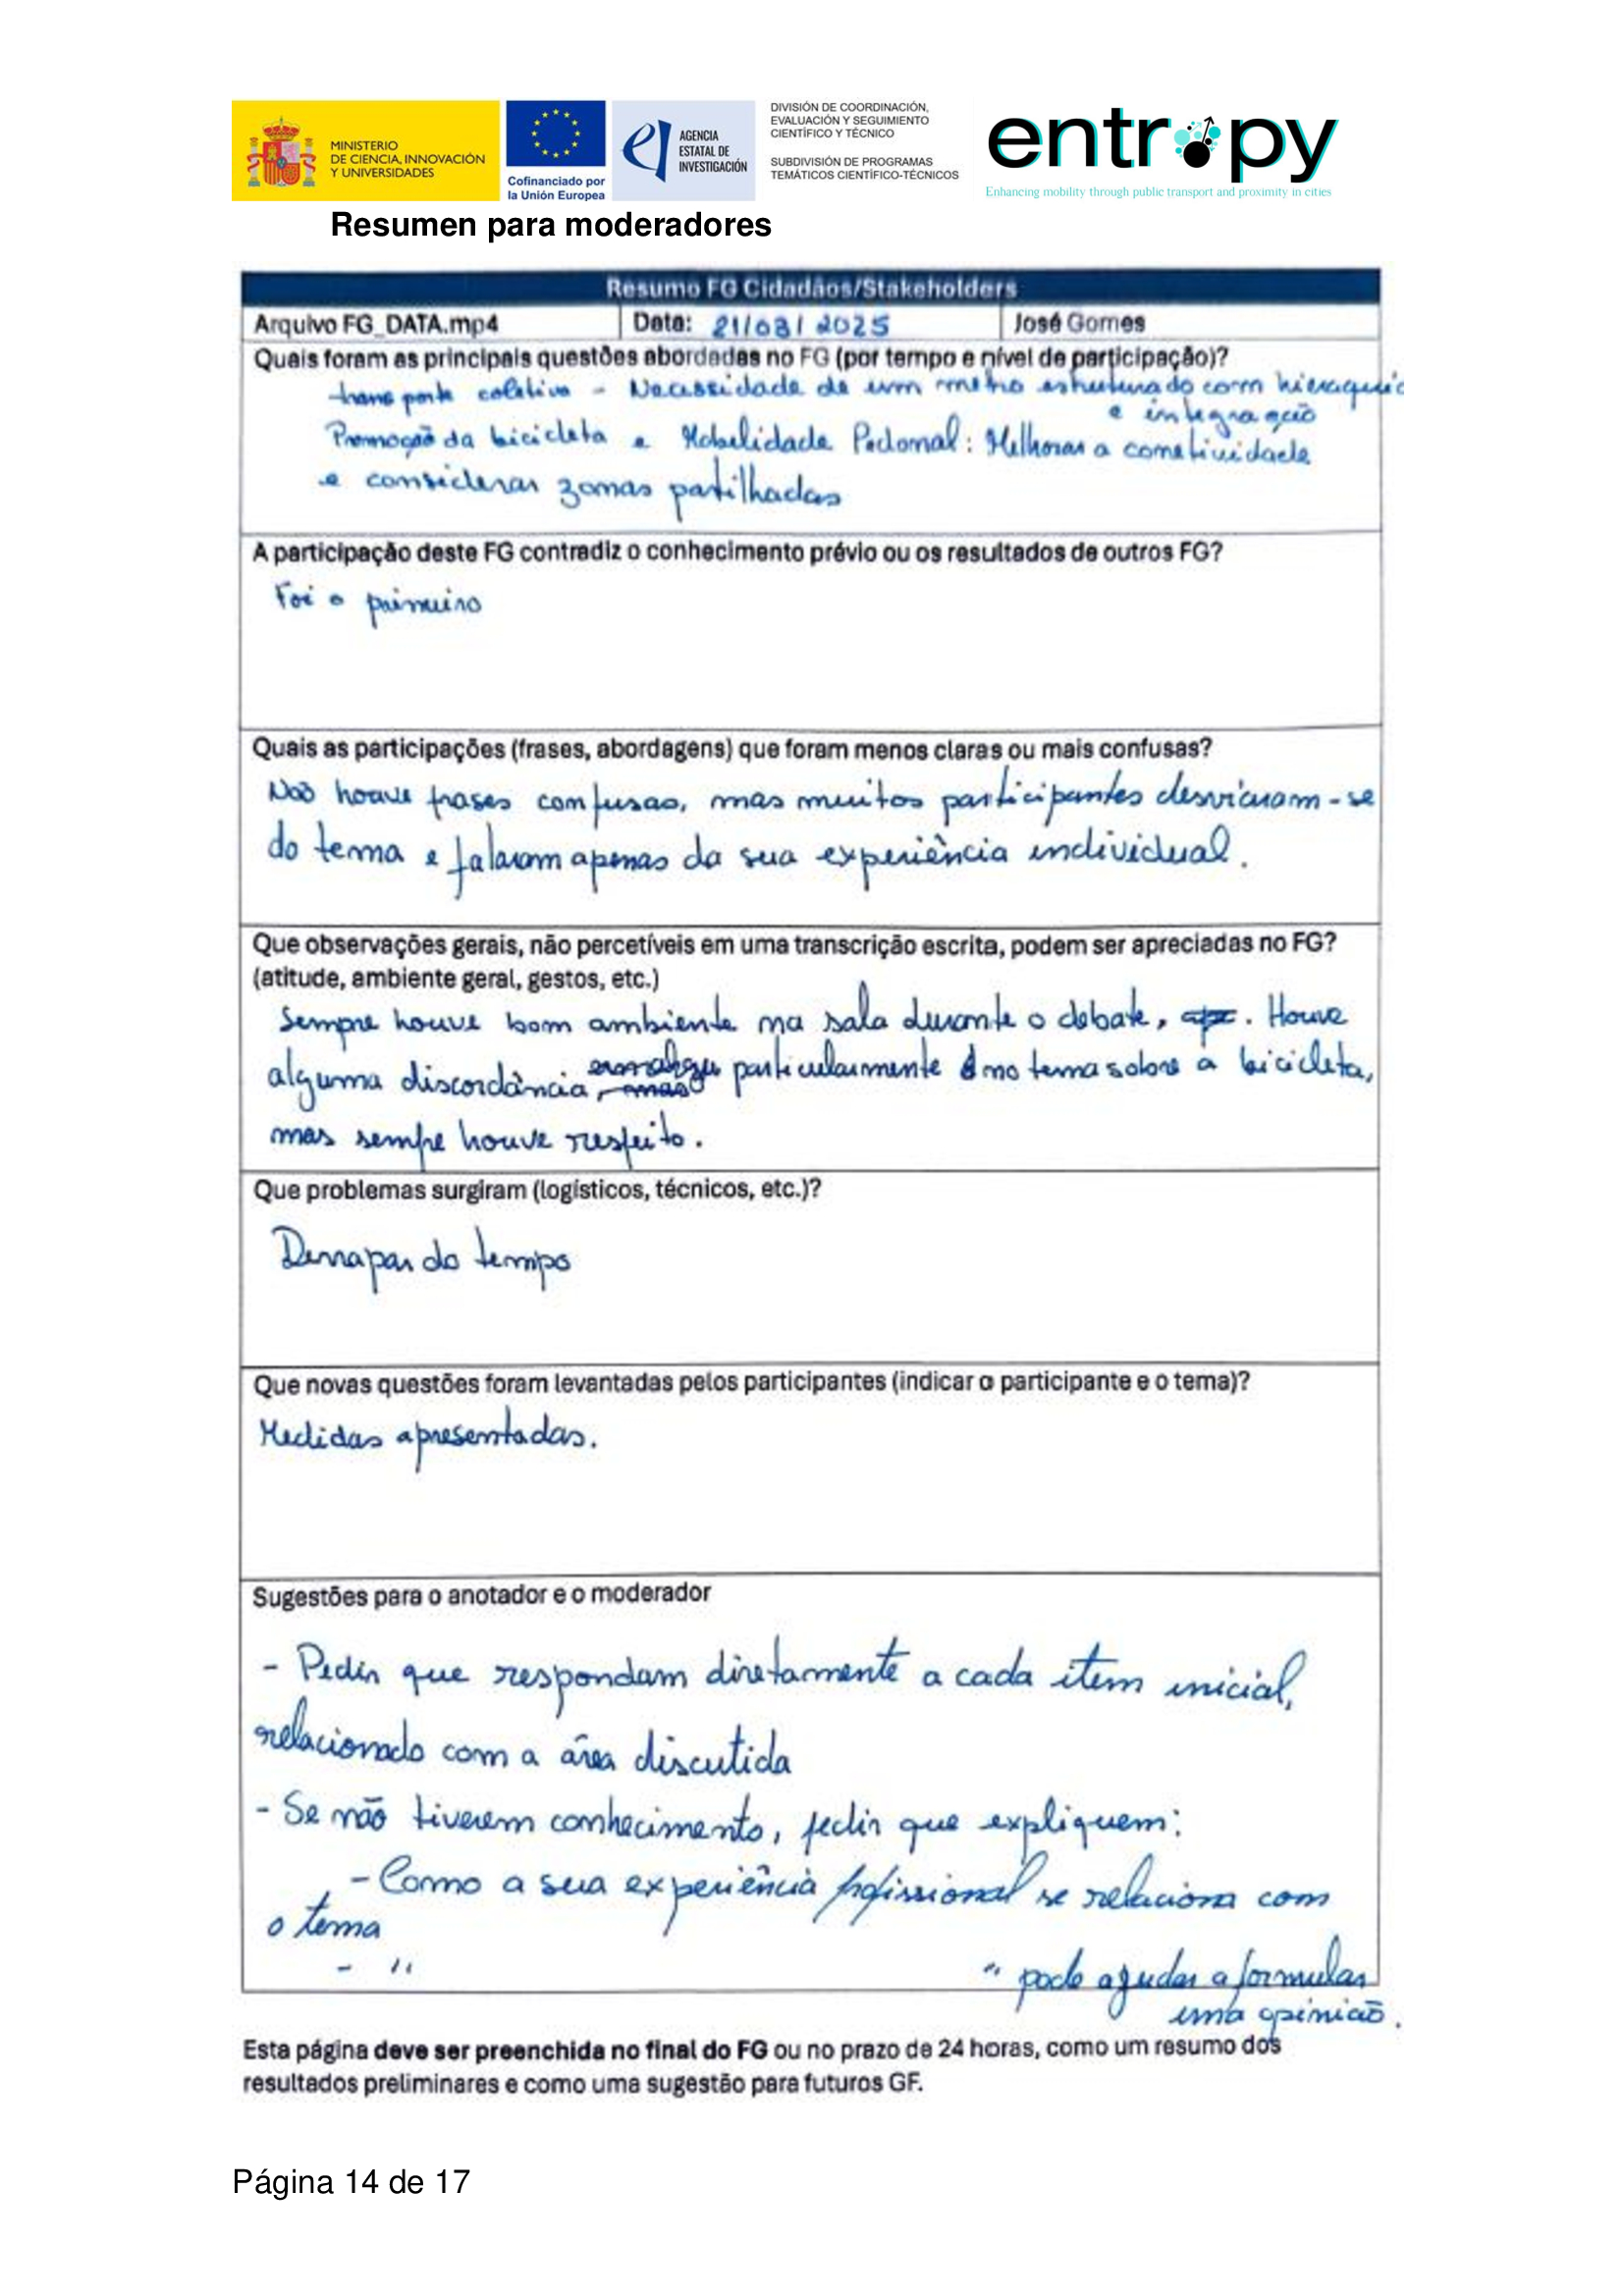 MINISTERIO
DE CIENCIA, INNOVACIÓN
Y UNIVERSIDADES
Cofinanciado por
la Unión Europea
AGENCIA
ESTATAL DE
INVESTIGACIÓN
DIVISIÓN DE COORDINACIÓN,
EVALUACIÓN Y SEGUIMIENTO
CIENTÍFICO Y TÉCNICO
SUBDIVISIÓN DE PROGRAMAS
TEMÁTICOS CIENTÍFICO-TÉCNICOS
entropy
Enhancing mobility through public transport and proximity in cities
Resumen para moderadores
Resumo FG Cidadãos/Stakeholders
Arquivo FG_DATA.mp4 Data: 21/03/2025 José Gomes
Quais foram as principais questões abordadas no FG (por tempo e nível de participação)?
transporte coletivo - Necessidade de um metro estruturado com
e integração
Promoção da bicicleta e Mobilidade Pedonal: Melhorar a conetividade
e considerar zonas partilhadas
A participação deste FG contradiz o conhecimento prévio ou os resultados de outros FG?
Foi o primeiro
Quais as participações (frases, abordagens) que foram menos claras ou mais confusas?
Não houve frases confusas, mas muitos participantes desviaram-se
do tema e falaram apenas da sua experiência individual.
Que observações gerais, não percetíveis em uma transcrição escrita, podem ser apreciadas no FG?
(atitude, ambiente geral, gestos, etc.)
Sempre houve bom ambiente na sala durante o debate, . Houve
alguma discordância, particularmente no tema sobre a bicicleta,
mas sempre houve respeito.
Que problemas surgiram (logísticos, técnicos, etc.)?
Derrapar do tempo
Que novas questões foram levantadas pelos participantes (indicar o participante e o tema)?
Medidas apresentadas.
Sugestões para o anotador e o moderador
- Pedir que respondam diretamente a cada item inicial,
relacionado com a área discutida
- Se não tiverem conhecimento, pedir que expliquem:
- Como a sua experiência profissional se relaciona com
o tema
- " " pode ajudar a formular
uma opinião.
Esta página deve ser preenchida no final do FG ou no prazo de 24 horas, como um resumo dos
resultados preliminares e como uma sugestão para futuros GF.
Página 14 de 17